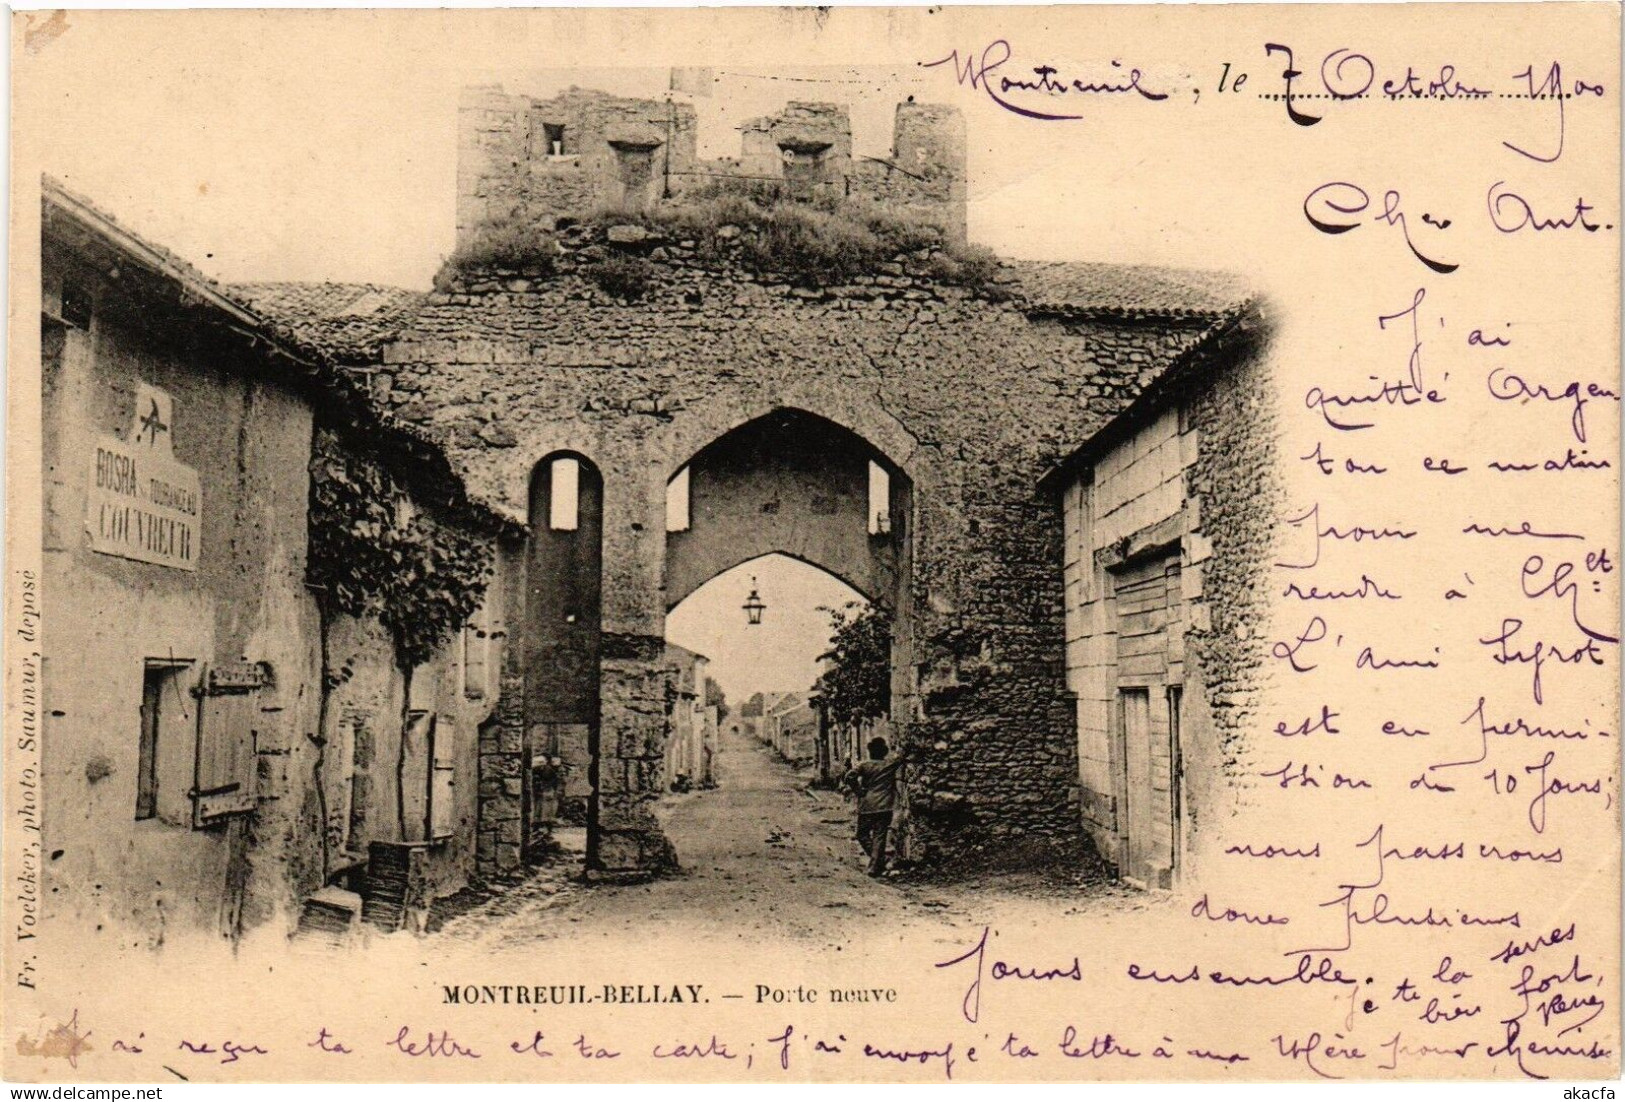 Montreuil, le 7 Octobre 1900
Cher Ant.
J'ai
quitté Argen-
ton ce matin
pour me
rendre à Ch et
L'ami Syrot
est en permi-
ssion de 10 Jours;
nous passerons
donc plusieurs
Jours ensemble. Je te la serres
bien fort,
J'ai reçu ta lettre et ta carte; J'ai envoyé ta lettre à ma Mère pour chemise
BOSRA
TOURANGEAU
COUVREUR
MONTREUIL-BELLAY. — Porte neuve
Fr. Voelcker, photo. Saumur, déposé
akacfa